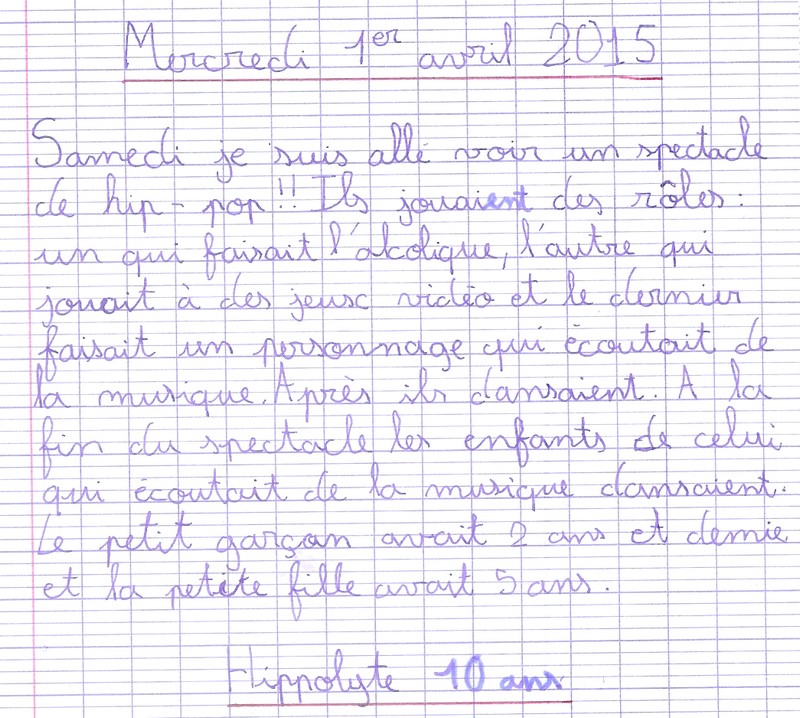 Mercredi 1er avril 2015
Samedi je suis allé voir un spectacle
de hip-pop!! Ils jouaient des rôles:
un qui faisait l'alcolique, l'autre qui
jouait à des jeux vidéo et le dernier
faisait un personnage qui écoutait de
la musique. Après ils dansaient. A la
fin du spectacle les enfants de celui
qui écoutait de la musique dansaient.
Le petit garçon avait 2 ans et demie
et la petite fille avait 5 ans.
Hippolyte 10 ans